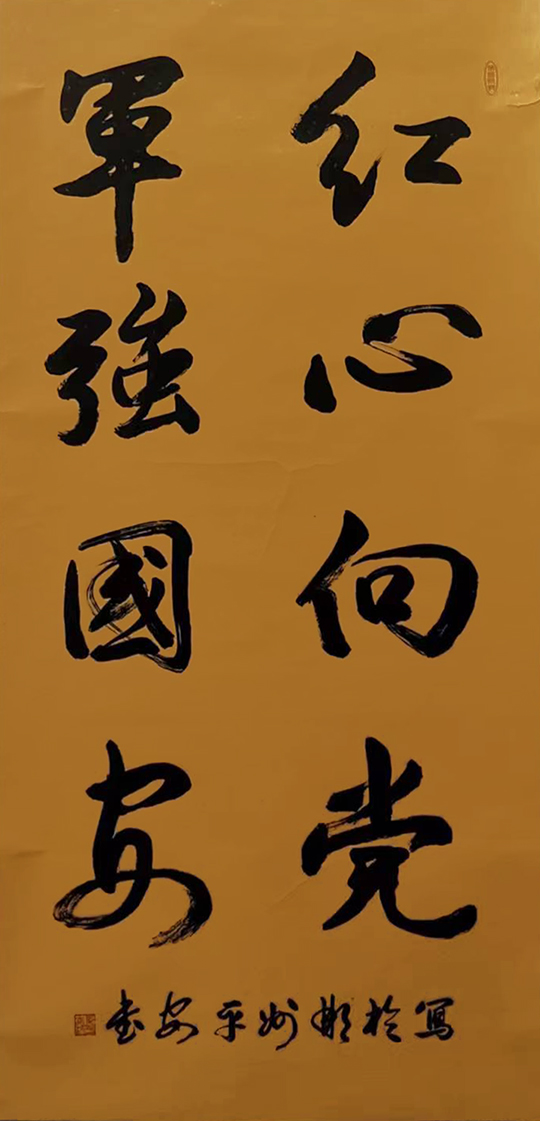 红心向党
軍強國安
寫於郴州平安書